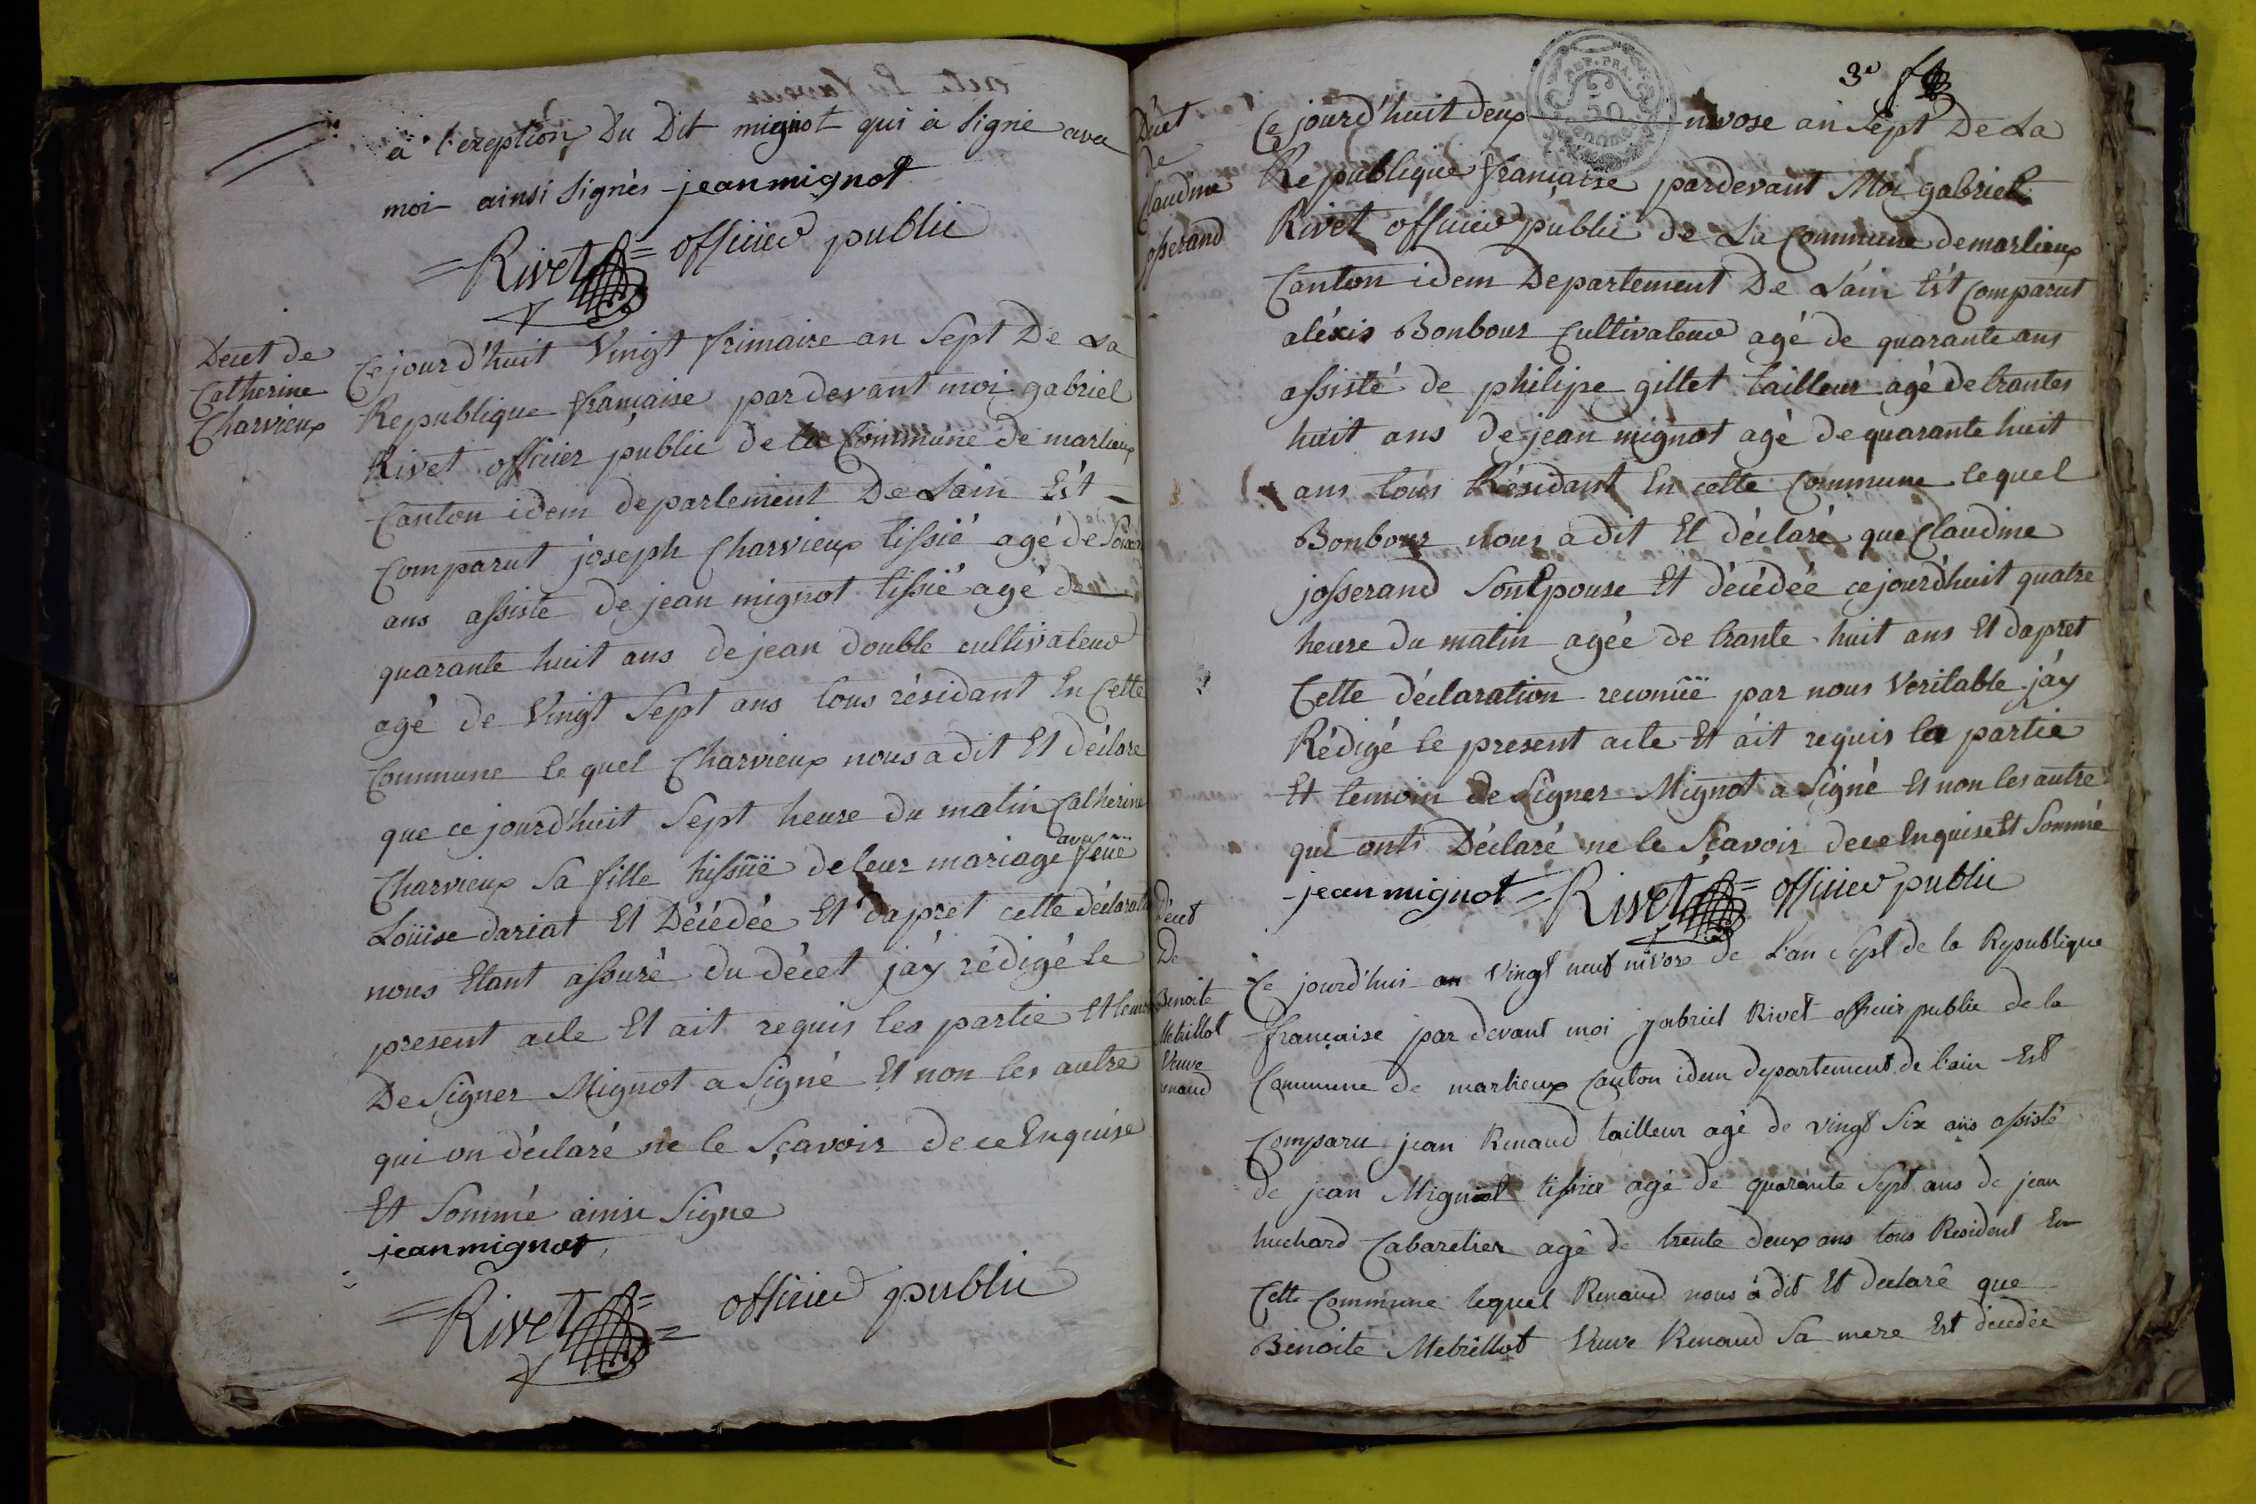 à l'exeption Du Dit mignot qui à Signé avec
moi ainsi Signés jean mignot
=Rivet= officier public
Decet de
Catherine
Charvieux
Ce jour d'huit Vingt frimaire an Sept De La
Republique française par devant moi gabriel
Rivet officier public de la Commune de marlieux
Canton idem departement De Lain Est
Comparut joseph Charvieux tissié agé de
ans assisté de jean mignot tissié agé de
quarante huit ans de jean double cultivateur
agé de Vingt Sept ans tous résidant En Cette
Commune le quel Charvieux nous a dit Et déclare
que ce jourd'huit Sept heure du matin Catherine
Charvieux Sa fille hissüë de leur mariage avec feüe
Loüise dariat Et Décédée Et dapret cette déclarat
nous Etant assuré du décet jáy rédigé le
present acte Et ait requis les partie Et temoi
De Signer Mignot a Signé Et non les autre
qui on déclaré ne le Sçavoir de ce Enquise
Et Sommé ainsi Signe
jean mignot
=Rivet= officier public
3e
Decet
de
Claudine
josserand
Ce jourd'huit deux nivose an Sept De La
Republique française pardevant Moi gabriel
Rivet officier public de La Commune de marlieux
Canton idem Departement De Láin Est Comparut
aléxis Bonbour Cultivateur agé de quarante ans
assisté de philipe gillet tailleur agé de trantes
huit ans de jean mignot agé de quarante huit
ans tous Résidant En cette Commune lequel
Bonbour nous a dit Et déclaré que Claudine
josserand Son Epouse Et décédée ce jourd'huit quatre
heure du matin agée de trante huit ans Et dapret
Cette déclaration reconüë par nous Veritable jáy
Rédigé le present acte Et áit requis la partie
Et temoin de Signer Mignot a Signé Et non les autre
qui onts Déclaré ne le Sçavoir de ce Enquise Et Sommé
jean mignot =Rivet= officier public
Décet
De
Benoite
Metrillot
Veuve
renaud
Ce jourd'hui au Vingt neuf nivose de L'an Sept de la Republique
française par devant moi gabriel Rivet officier public de la
Commune de marlieux Canton idem departement de l'ain Est
Comparu jean Renaud tailleur agé de vingt Six ans assisté
de jean Mignot tissier agé de quarante Sept ans de jean
huchard Cabaretier agé de trente deux ans tous Resident En
Cette Commune lequel Renaud nous à dit Et declaré que
Benoite Metrillot Veuve Renaud Sa mere Est décedée